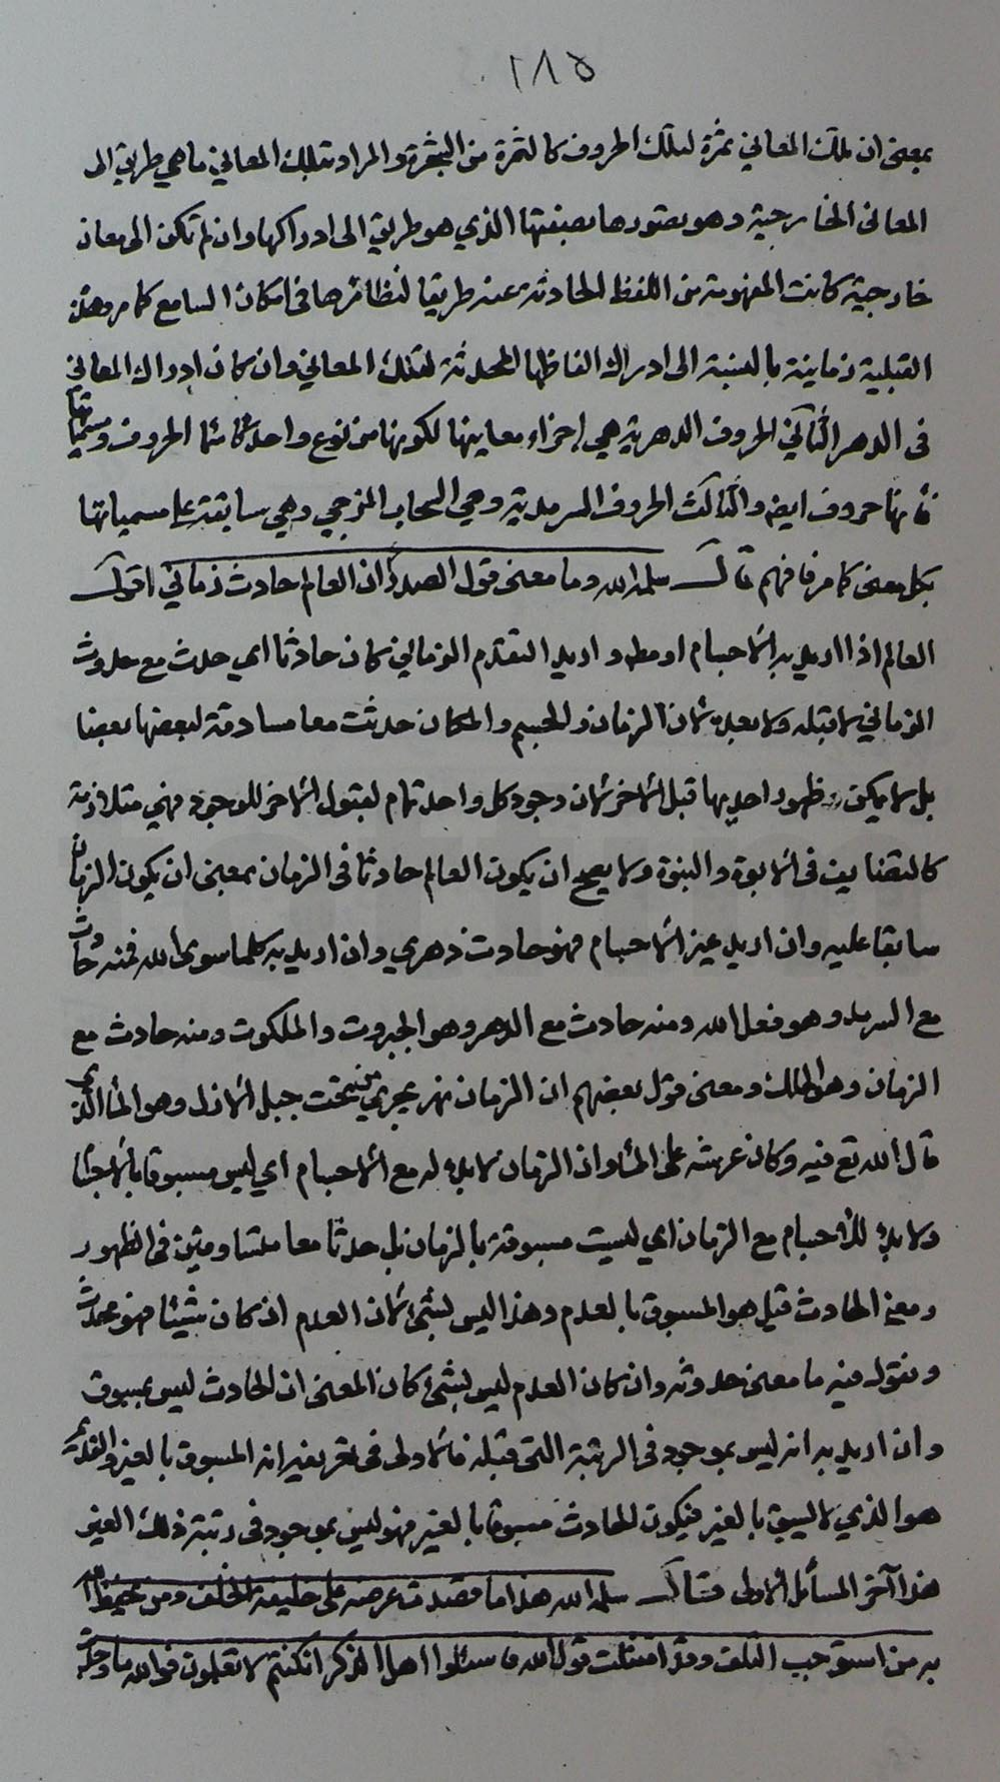 ١٨٥
بمعنى ان تلك المعاني ثمرة لتلك الحروف كالثمرة من الشجرة والمراد بتلك المعاني ما هي طريق الى
المعاني الخارجية وهو بصورها بصفتها الذي هو طريق الى ادراكها وان لم تكن الى معان
خارجية كانت المفهومة من اللفظ الحادثة عنه طريقا لنظائرها في امكان السامع كما مر وهذه
القبلية زمانية بالنسبة الى ادراك الفاظها المحدثة لتلك المعاني وان كان ادراك المعاني
في الدهر الثاني الحروف الدهرية هي اجزاء معانيها لكونها من نوع واحد كما الحروف ومسمياتها
فانها حروف ايضا والثالث الحروف السرمدية وهي السحاب المزجي وهي سابقة على مسمياتها
بكل معنى كما مر فافهم قال سلمه الله وما معنى قول الصدر ان العالم حادث زماني اقول
العالم اذا اريد به الاجسام او مطلقا واريد التقدم الزماني كان حادثا اي حدث مع حدوث
الزماني لا قبله ولا بعده لان الزمان والجسم والمكان حدثت معا مساوقة لبعضها بعضا
بل لا يمكن ظهور احديها قبل الاخر لان وجود كل واحد تمام لقبول الاخر للوجود فهي متلازمة
كالتضايف في الابوة والبنوة ولا يصح ان يكون العالم حادثا في الزمان بمعنى ان يكون الزمان
سابقا عليه وان اريد غير الاجسام فهو حادث دهري وان اريد به كلما سوى الله فمنه حادث
مع السرمد وهو فعل الله ومنه حادث مع الدهر وهو الجبروت والملكوت ومنه حادث مع
الزمان وهو الملك ومعنى قول بعضهم ان الزمان نهر يجري من تحت جبل الازل وهو الماء الذي
قال الله تع فيه وكان عرشه على الماء وان الزمان لا بدء له مع الاجسام اي ليس مسبوقا بالاجسام
ولا بدء للاجسام مع الزمان اي ليست مسبوقة بالزمان بل حدثا معا متساوقين في الظهور
ومعنى الحادث قيل هو المسبوق بالعدم وهذا ليس بشئ لان العدم ان كان شيئا فهو محدث
ونقول فيه ما معنى حدوثه وان كان العدم ليس بشئ كان المعنى ان الحادث ليس بمسبوق
وان اريد به انه ليس بموجود في الرتبة التي قبله فالاولى في تعريفه انه المسبوق بالغير والقديم
هو الذي لا يسبق بالغير فيكون الحادث مسبوقا بالغير فهو ليس بموجود في رتبة ذلك الغير
هذا آخر المسائل الاولى قال سلمه الله هذا ما قصدت عرضه على خليفة الخلف ومن
به من استوجب التلف وقد امتثلت قول الله فاسئلوا اهل الذكر ان كنتم لا تعلمون فوالله ما وجدت